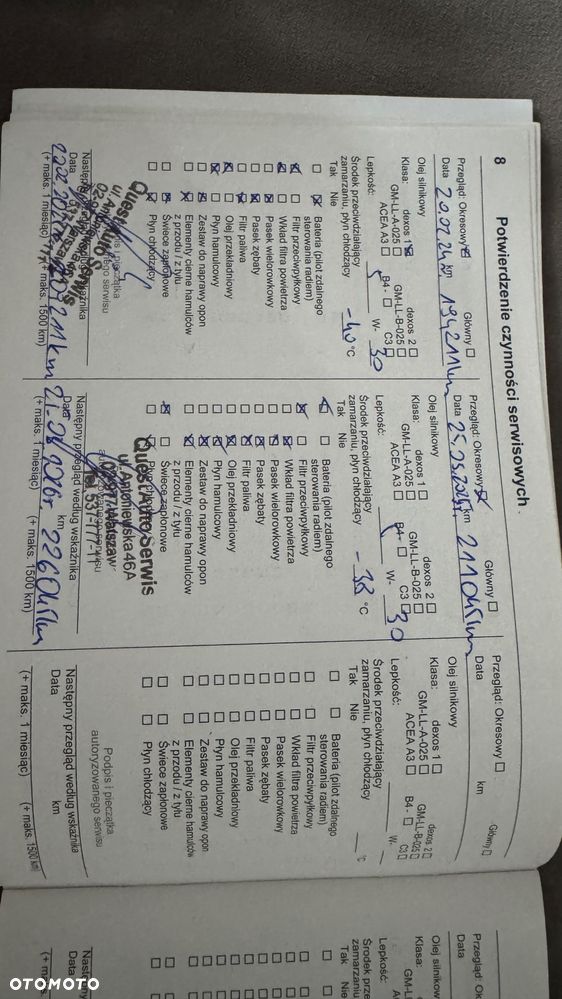 8 Potwierdzenie czynności serwisowych
Przegląd: Okresowy ☒ Główny ☐
Data 29.07.24r. km 194211km
Olej silnikowy
Klasa: dexos 1 ☒ dexos 2 ☐
GM-LL-A-025 ☐ GM-LL-B-025 ☐
ACEA A3 ☐ B4 - ☐ C3 ☐
Lepkość: 5 W- 30
Środek przeciwdziałający
zamarzaniu, płyn chłodzący -40 °C
Tak Nie
Bateria (pilot zdalnego
sterowania radiem)
Filtr przeciwpyłkowy
Wkład filtra powietrza
Pasek wielorowkowy
Pasek zębaty
Filtr paliwa
Olej przekładniowy
Płyn hamulcowy
Zestaw do naprawy opon
Elementy cierne hamulców
z przodu / z tyłu
Świece zapłonowe
Płyn chłodzący
Quest Auto Serwis
Następny przegląd według wskaźnika
Data
(+ maks. 1 miesiąc) (+ maks. 1500 km)
Przegląd: Okresowy ☒ Główny ☐
Data km 211045km
Olej silnikowy
Klasa: dexos 1 ☐ dexos 2 ☐
GM-LL-A-025 ☐ GM-LL-B-025 ☐
ACEA A3 ☐ B4 - ☐ C3 ☐
Lepkość: W- 30
Środek przeciwdziałający
zamarzaniu, płyn chłodzący -38 °C
Tak Nie
Bateria (pilot zdalnego
sterowania radiem)
Filtr przeciwpyłkowy
Wkład filtra powietrza
Pasek wielorowkowy
Pasek zębaty
Filtr paliwa
Olej przekładniowy
Płyn hamulcowy
Zestaw do naprawy opon
Elementy cierne hamulców
z przodu / z tyłu
Świece zapłonowe
Płyn chłodzący
Quest Auto Serwis
ul. Antoniewska 46A
Następny przegląd według wskaźnika
Data km 226045km
(+ maks. 1 miesiąc) (+ maks. 1500 km)
Przegląd: Okresowy ☐ Główny ☐
Data km
Olej silnikowy
Klasa: dexos 1 ☐ dexos 2 ☐
GM-LL-A-025 ☐ GM-LL-B-025 ☐
ACEA A3 ☐ B4 - ☐ C3 ☐
Lepkość: W-
Środek przeciwdziałający
zamarzaniu, płyn chłodzący °C
Tak Nie
Bateria (pilot zdalnego
sterowania radiem)
Filtr przeciwpyłkowy
Wkład filtra powietrza
Pasek wielorowkowy
Pasek zębaty
Filtr paliwa
Olej przekładniowy
Płyn hamulcowy
Zestaw do naprawy opon
Elementy cierne hamulców
z przodu / z tyłu
Świece zapłonowe
Płyn chłodzący
Podpis i pieczątka
autoryzowanego serwisu
Następny przegląd według wskaźnika
Data km
(+ maks. 1 miesiąc) (+ maks. 1500 km)
Przegląd:
Data
Olej silnikowy
Klasa:
Lepkość:
Tak Nie
OTOMOTO